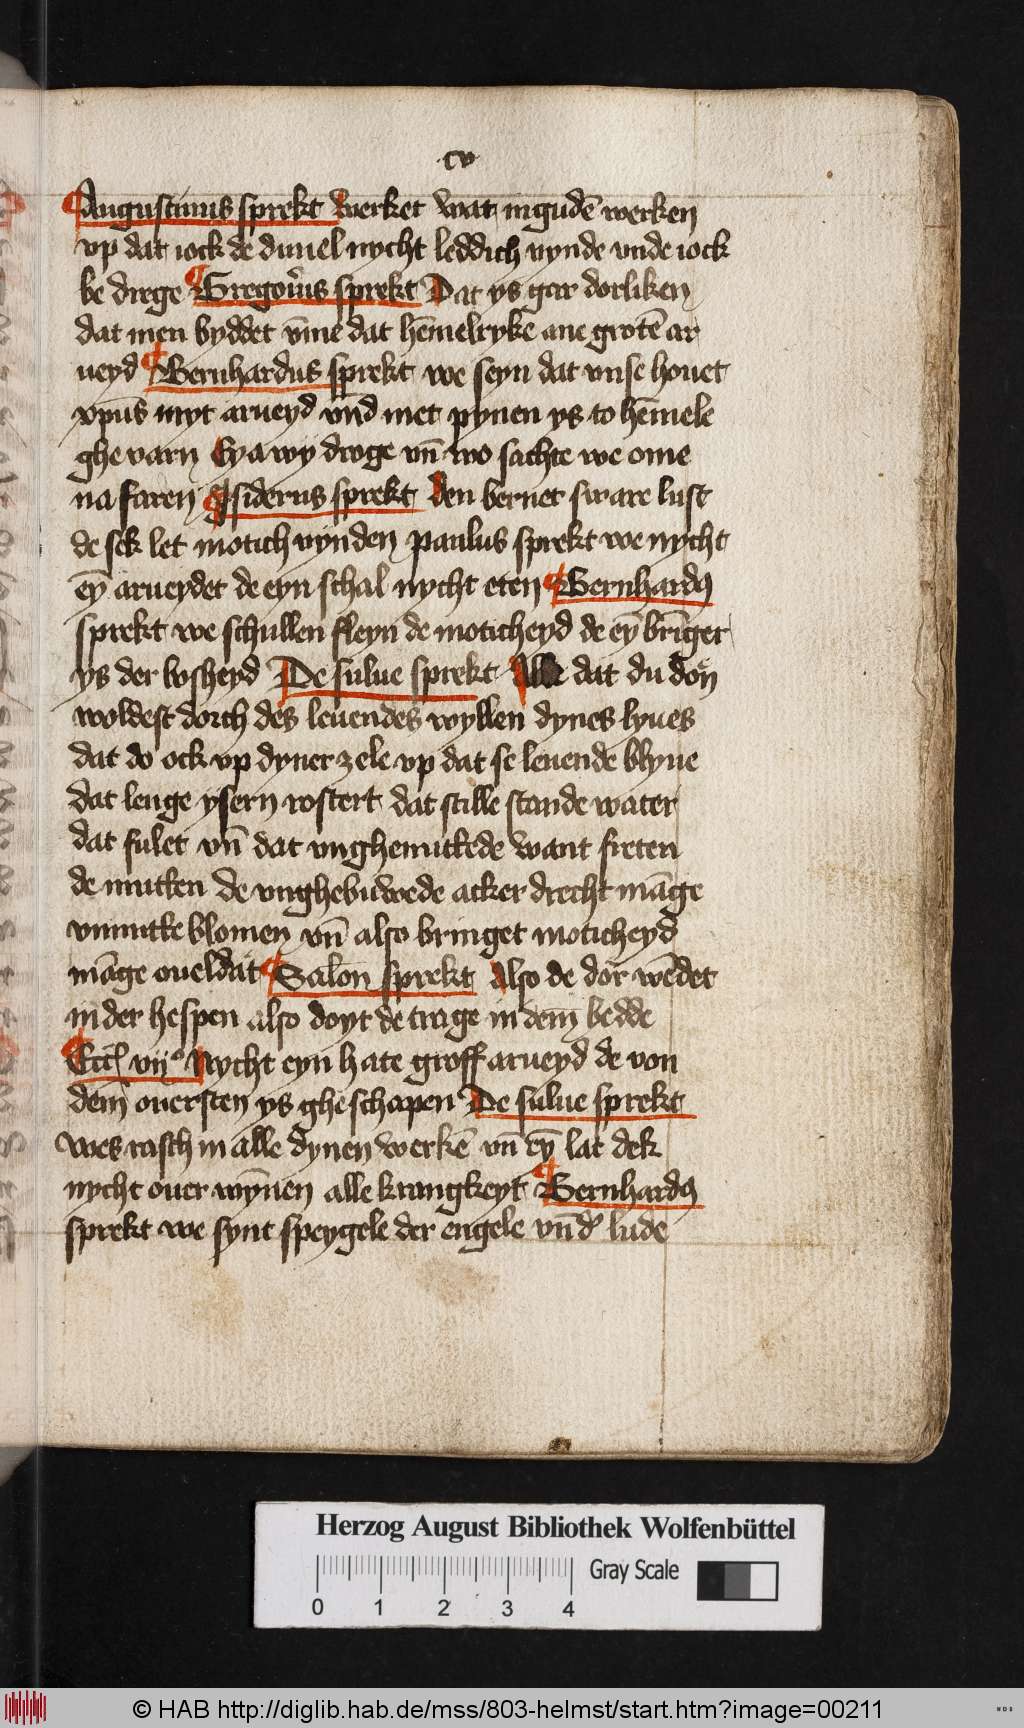 cv
Augustinus sprekt werket wat in gudē werken
vp dat iock de duuel nycht leddich vynde vnde iock
be drege Gregoriꝰ sprekt Dat ys gar dorliken
dat men byddet v̄me dat hēmelryke ane grotē ar
ueyd Bernhardus sprekt we seyn dat vnse houet
xpūs myt arueyd vn̄d met pynen ys to hēmele
ghe varn Eya wy droge vn̄ wo sachte we ome
na faren Isiderus sprekt den bernet sware lust
de sek let motich vynden paulus sprekt we nycht
eȳ arueydet de eyn schal nycht eten Bernhardꝰ
sprekt we schullen fleyn de moticheyd de eȳ brīger
ys der bosheyd De sulue sprekt Alle dat du don
woldest dorch des leuendes wyllen dynes lyues
dat do ock vp dyner zele vp dat se leuende blyue
dat lenge ysern rostert dat stille stande water
dat fulet vn̄ dat vnghenutkede want freten
de mutken de vnghebuwede acker drecht māge
vnnutke blomen vn̄ also bringet moticheyd
māge oueldat Salon sprekt Also de dor wēdet
in der hespen also doyt de trage in dem bedde
Eccl vijº Nycht eyn hate groff arueyd de von
dem ouersten ys ghe schapen De sulue sprekt
wes rasch in alle dynen werkē vn̄ eȳ lat dek
nycht ouer wȳnen alle krangkeyt Bernhardꝰ
sprekt we synt speygele der engele vn̄d lude
Herzog August Bibliothek Wolfenbüttel
Gray Scale
0 1 2 3 4
© HAB http://diglib.hab.de/mss/803-helmst/start.htm?image=00211